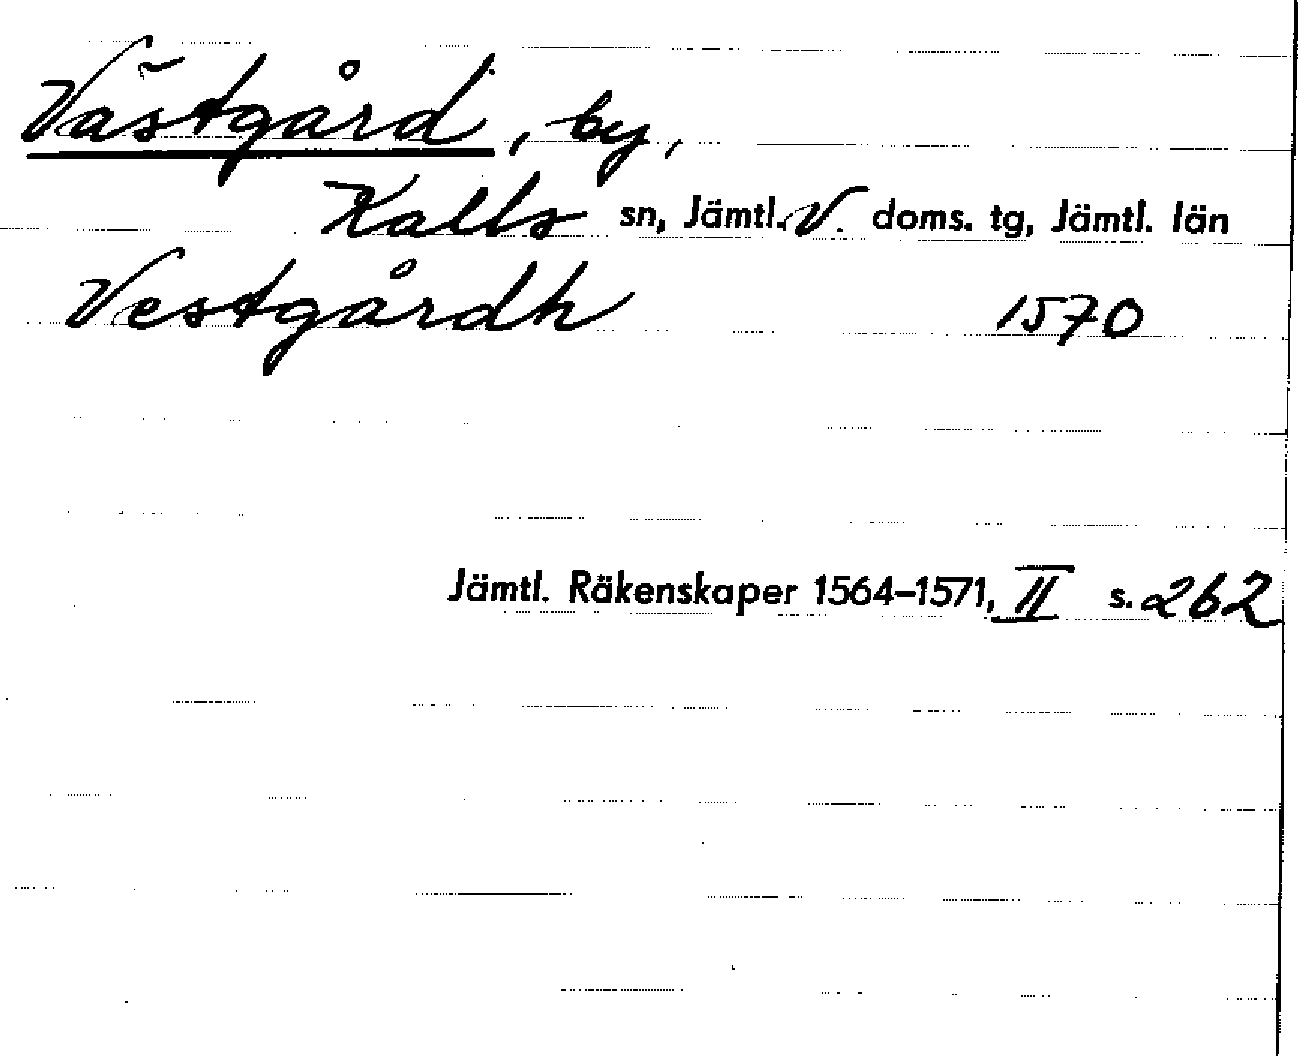 Västgård, by,
Kalls sn, Jämtl. V. doms. tg, Jämtl. län
Vestgårdh 1570
Jämtl. Räkenskaper 1564–1571, II s. 262